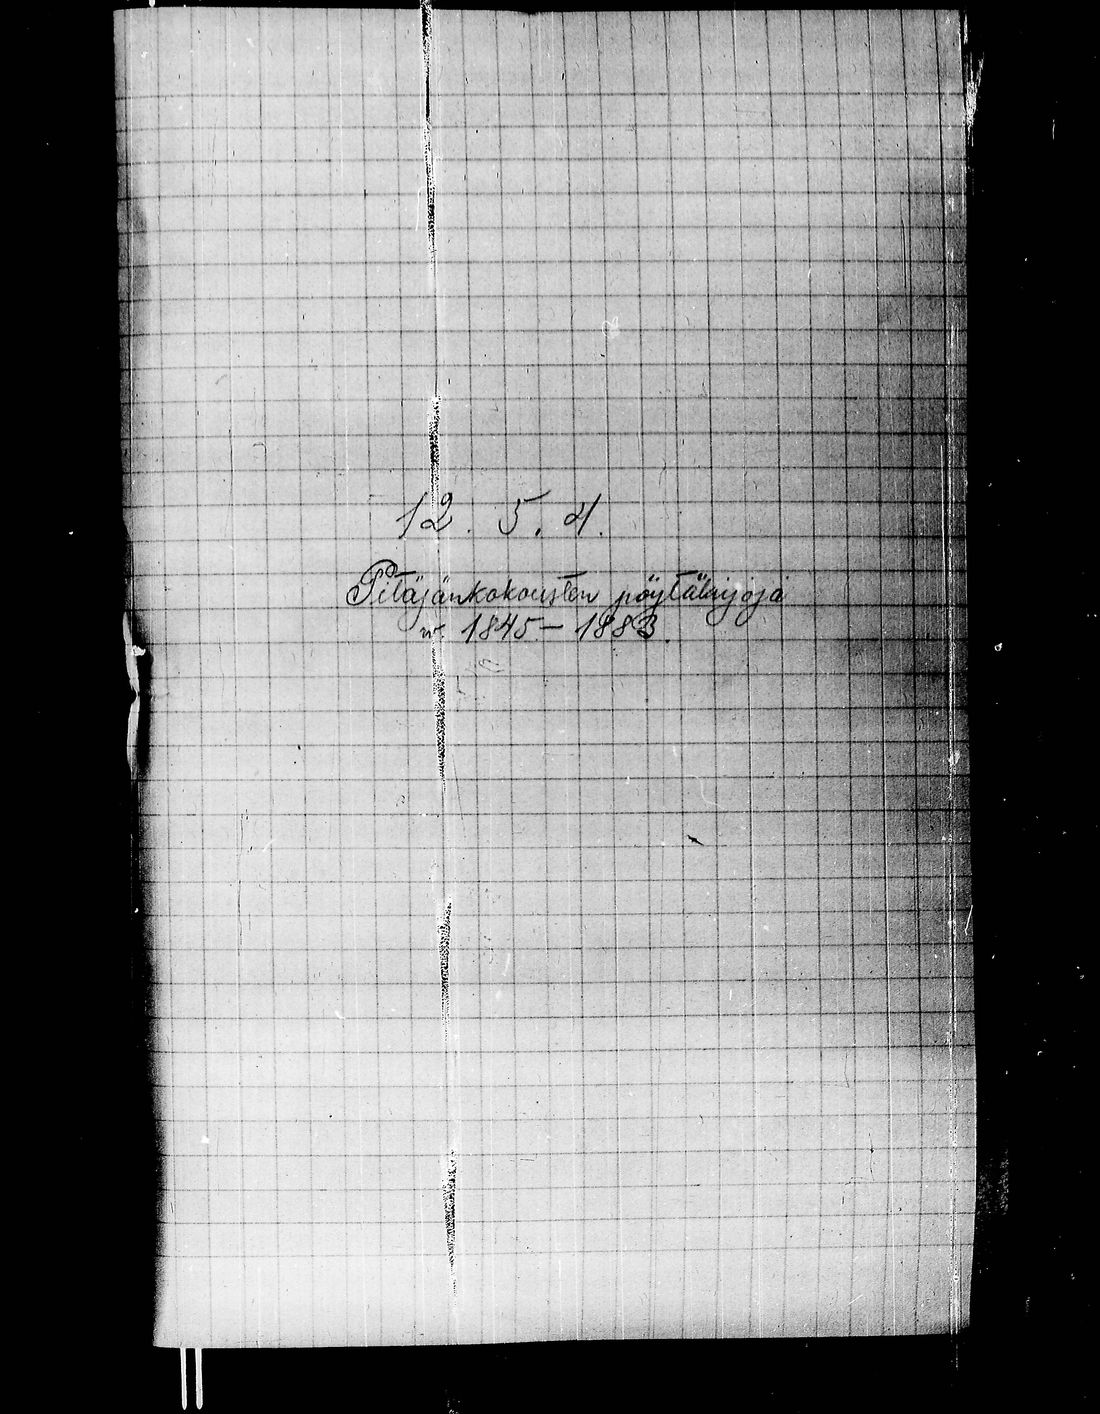 12. 5. 4.
Pitäjänkokousten pöytäkirjoja
w. 1845-1883.